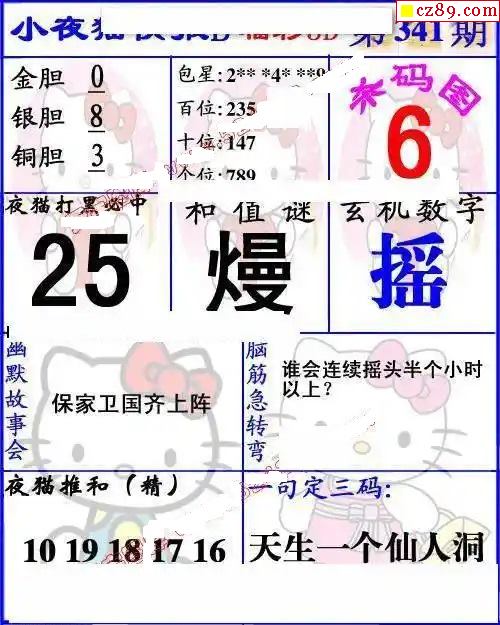 cz89.com
小夜猫
第341期
金胆 0
银胆 8
铜胆 3
包星:2** *4* **9
百位:235
十位:147
个位:789
来码图
6
夜猫打黑必中
25
和值谜
熳
玄机数字
摇
幽默故事会
保家卫国齐上阵
脑筋急转弯
谁会连续摇头半个小时
以上?
夜猫推和(精)
10 19 18 17 16
一句定三码:
天生一个仙人洞